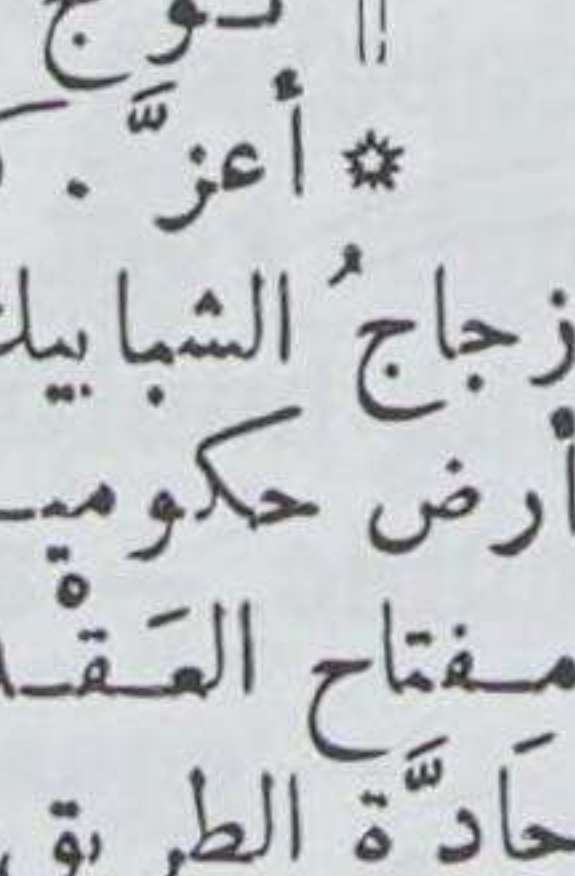 أعزَّ .
زجاجُ الشبابيك
أرض حكوميـ
مفتاح العَقْـ
حَادَّة الطريق